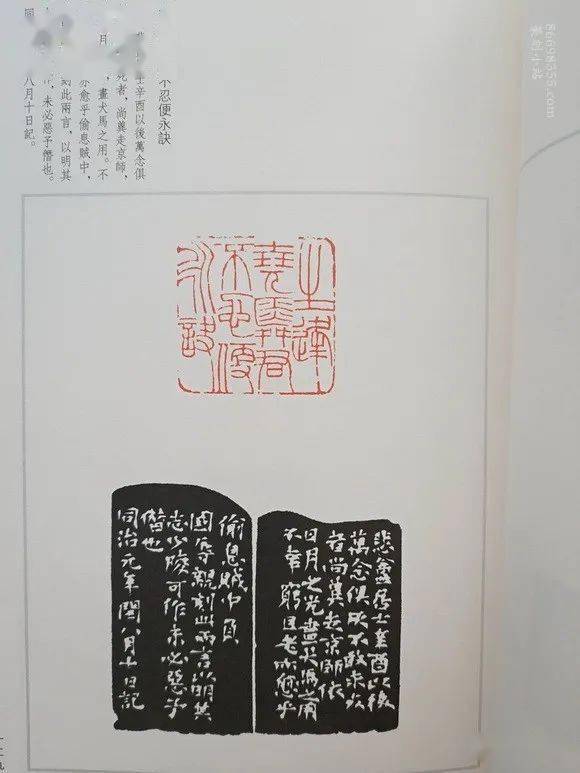 不忍便永訣
辛酉以後萬念俱
死者，尚冀走京師，
月
，盡犬馬之用。不
亦愈乎偷息賊中，
刻此兩言，以明其
，未必惡予僭也。
同
八月十日記。
生逢
堯舜君
不忍便
永訣
悲盦居士辛酉以後
萬念俱灰不敢求死
者尚冀走京師依
日月之光盡犬馬之用
不幸窮且老亦愈乎
偷息賊中負
國辱親刻此兩言以明其
志少陵可作未必惡予
僭也
同治元年閏八月十日記
86698555.com
篆刻小站